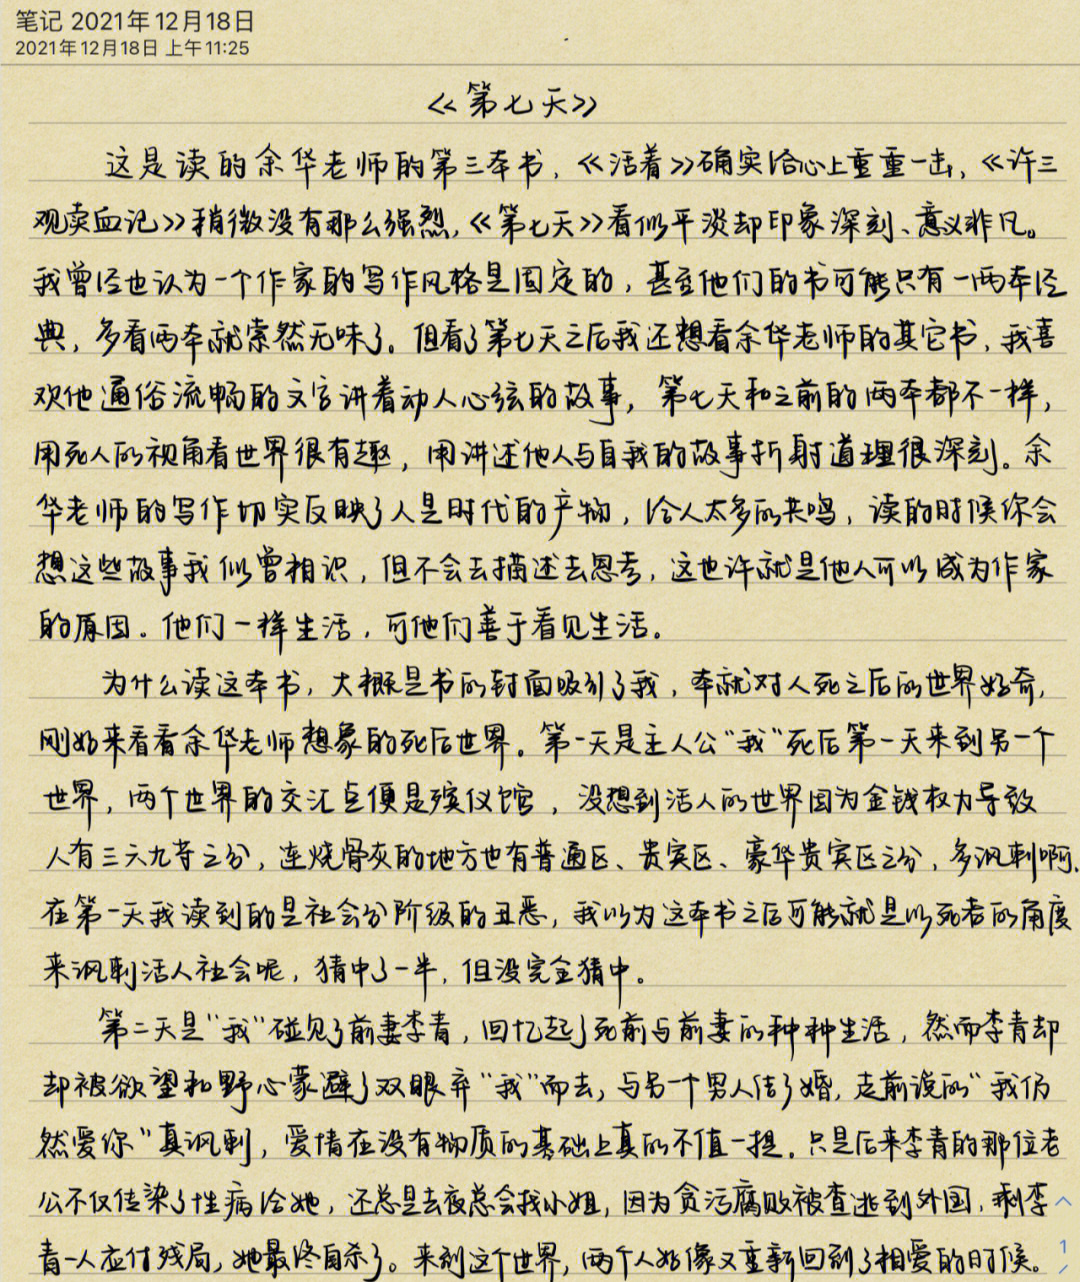 笔记 2021年12月18日
2021年12月18日 上午11:25
《第七天》
这是读的余华老师的第三本书，《活着》确实给心上重重一击，《许三
观卖血记》稍微没有那么强烈，《第七天》看似平淡却印象深刻、意义非凡。
我曾经也认为一个作家的写作风格是固定的，甚至他们的书可能只有一两本经
典，多看两本就索然无味了。但看了第七天之后我还想看余华老师的其它书，我喜
欢他通俗流畅的文字讲着动人心弦的故事，第七天和之前的两本都不一样，
用死人的视角看世界很有趣，用讲述他人与自我的故事折射道理很深刻。余
华老师的写作切实反映了人是时代的产物，给人太多的共鸣，读的时候你会
想这些故事我似曾相识，但不会去描述去思考，这也许就是他人可以成为作家
的原因。他们一样生活，可他们善于看见生活。
为什么读这本书，大概是书的封面吸引了我，本就对人死之后的世界好奇，
刚好来看看余华老师想象的死后世界。第一天是主人公“我”死后第一天来到另一个
世界，两个世界的交汇点便是殡仪馆，没想到活人的世界因为金钱权力导致
人有三六九等之分，连烧骨灰的地方也有普通区、贵宾区、豪华贵宾区之分，多讽刺啊，
在第一天我读到的是社会分阶级的丑恶，我以为这本书之后可能就是以死者的角度
来讽刺活人社会呢，猜中了一半，但没完全猜中。
第二天是“我”碰见了前妻李青，回忆起了死前与前妻的种种生活，然而李青却
却被欲望和野心蒙避了双眼弃“我”而去，与另一个男人结了婚，走前说的“我仍
然爱你”真讽刺，爱情在没有物质的基础上真的不值一提。只是后来李青的那位老
公不仅传染了性病给她，还总是去夜总会找小姐，因为贪污腐败被查逃到外国，剩李
青一人应付残局，她最终自杀了。来到这个世界，两个人好像又重新回到了相爱的时候。
1